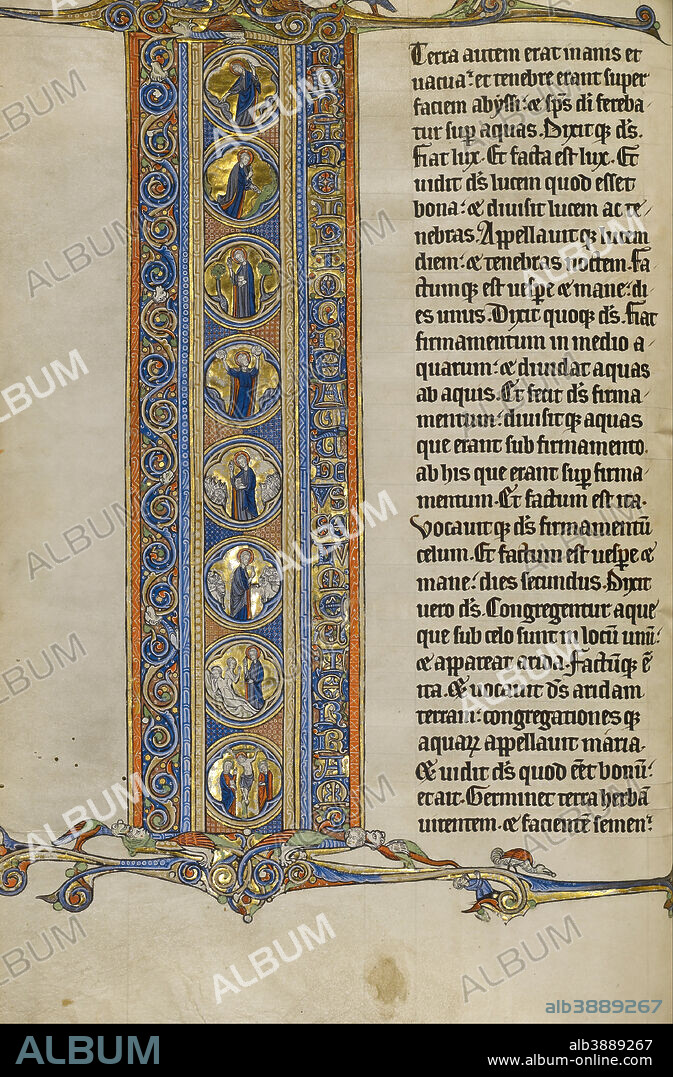 Terra autem erat inanis et
uacua: et tenebre erant super
faciem abyssi: et sp̄s dī fereba
tur sup̄ aquas. Dixitqꝫ ds̄.
fiat lux. Et facta est lux. Et
uidit ds̄ lucem quod esset
bona: et diuisit lucem ac te
nebras. Appellauitqꝫ lucem
diem: et tenebras noctem. Fa
ctumqꝫ est uesꝑe et mane: di
es unus. Dixit quoqꝫ ds̄. fiat
firmamentum in medio a
quarum: et diuidat aquas
ab aquis. Et fecit ds̄ firma
mentum: diuisitqꝫ aquas
que erant sub firmamento.
ab his que erant suꝑ firma
mentum. Et factum est ita.
Vocauitqꝫ ds̄ firmamentū
celum. Et factum est uesꝑe et
mane: dies secundus. Dixit
uero ds̄. Congregentur aque
que sub celo sunt in locū unū:
et appareat arida. factūqꝫ ē
ita. Et uocauit ds̄ aridam
terram: congregationes qꝫ
aquaꝝ appellauit maria.
Et uidit ds̄ quod eēt bonū:
et ait. Germinet terra herbā
uirentem. et facientē semen:
IN PRINCIPIO CREAVIT DEVS CELVM ET TERRAM
ALBUM
alb3889267
ALBUM
alb3889267
www.album-online.com